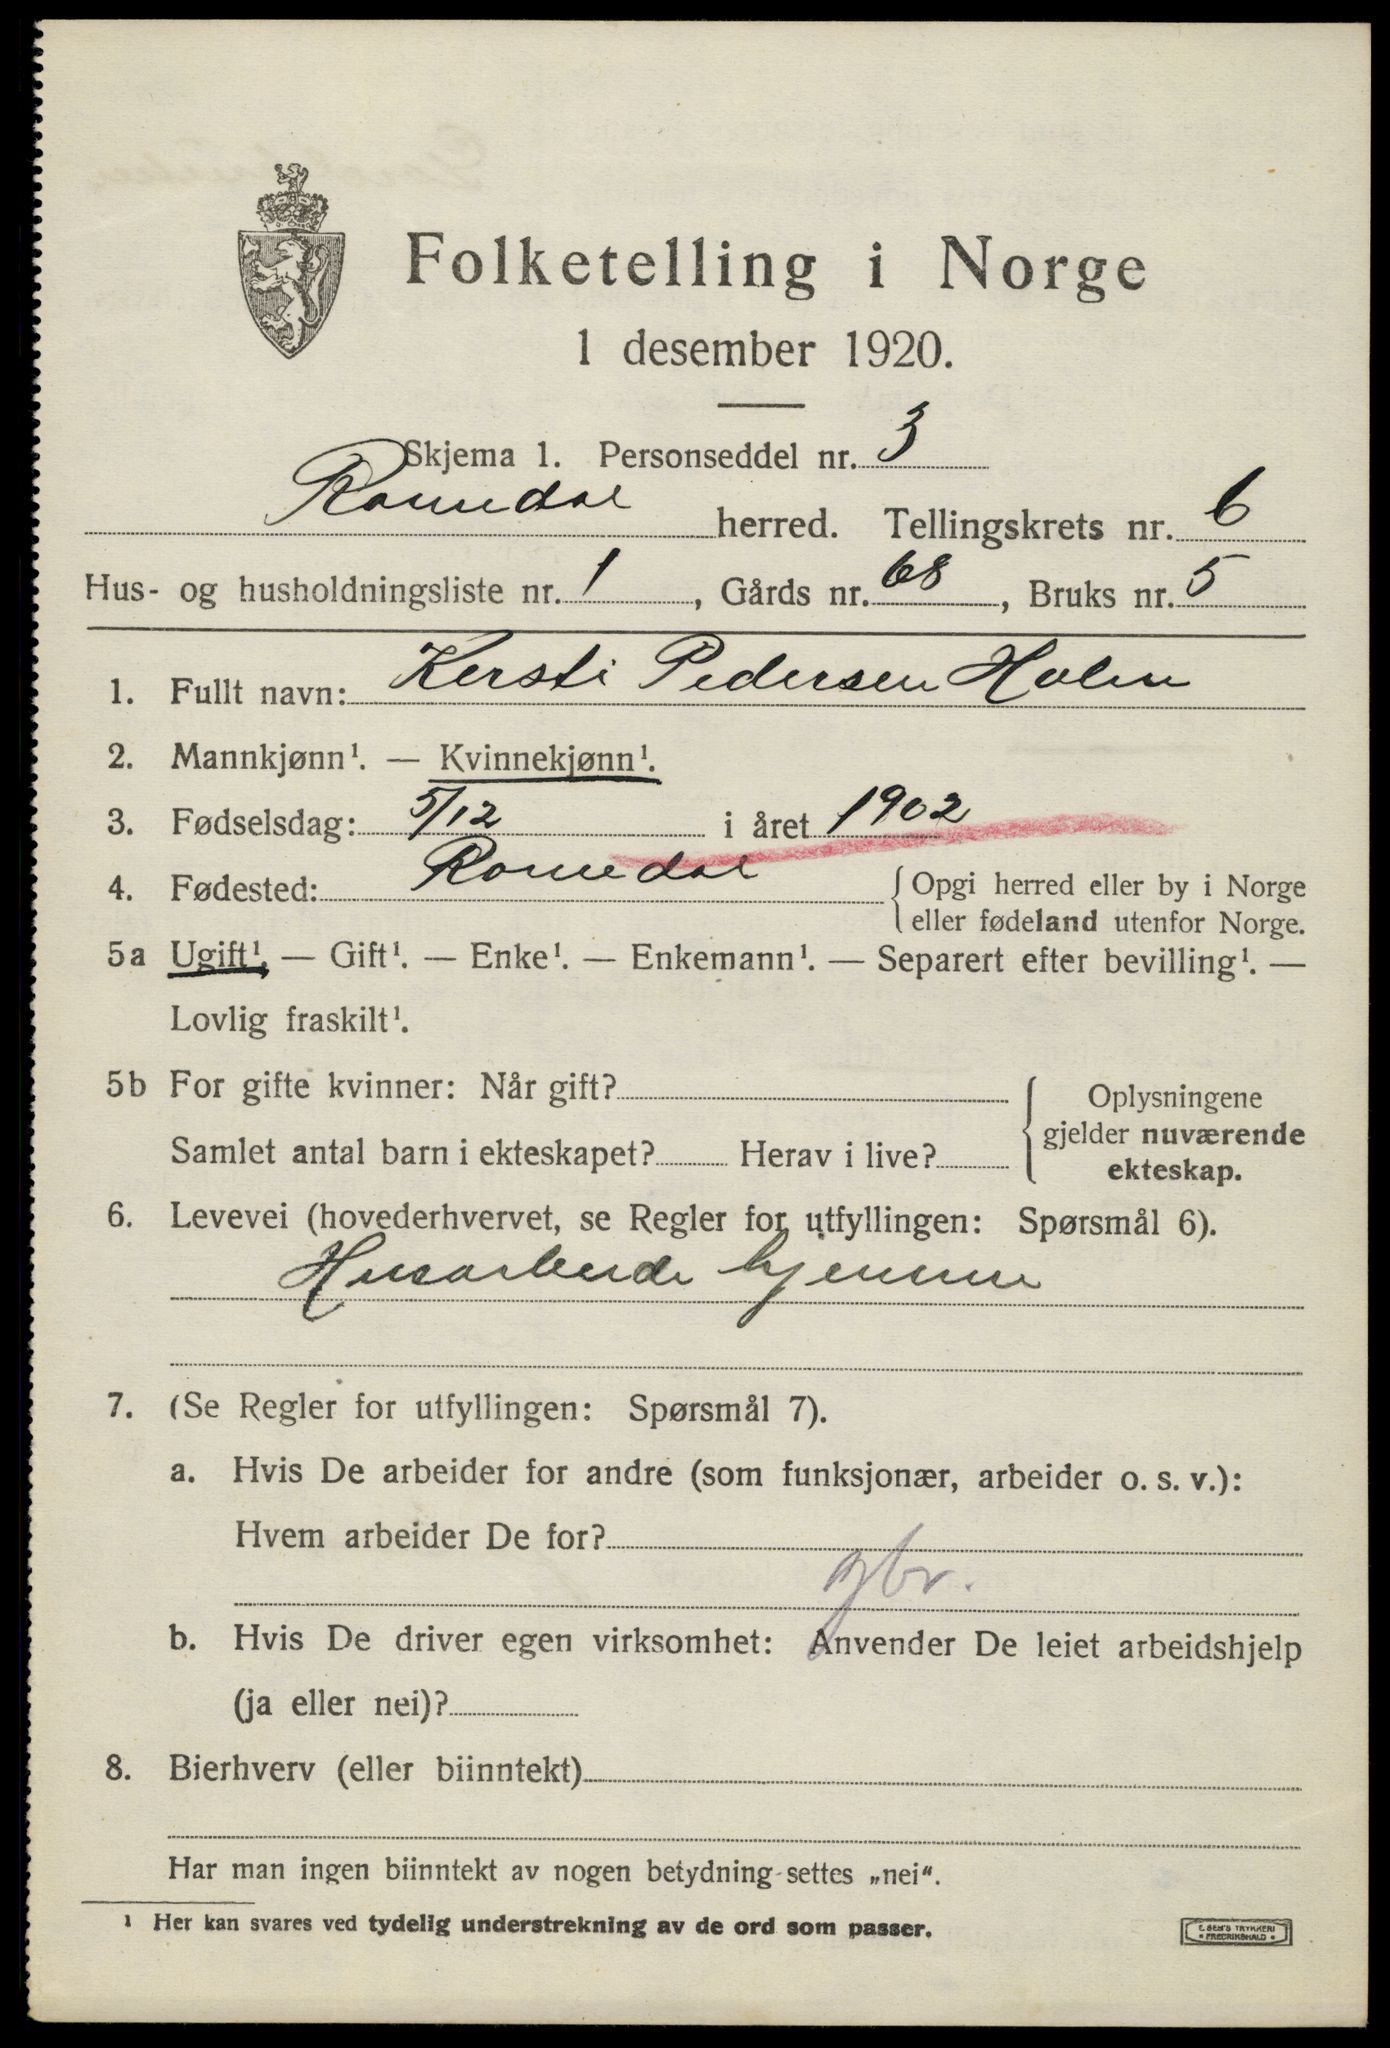 Folketelling i Norge
1 desember 1920.
Skjema 1. Personseddel nr. 3
Romedal herred. Tellingskrets nr. 6
Hus- og husholdningsliste nr. 1, Gårds nr. 68, Bruks nr. 5
1. Fullt navn: Kersti Pedersen Holm
2. Mannkjønn¹. — Kvinnekjønn¹.
3. Fødselsdag: 5/12 i året 1902
4. Fødested: Romedal { Opgi herred eller by i Norge
eller fødeland utenfor Norge.
5a Ugift¹. — Gift¹. — Enke¹. — Enkemann¹. — Separert efter bevilling¹. —
Lovlig fraskilt¹.
5b For gifte kvinner: Når gift?
Samlet antal barn i ekteskapet? Herav i live?
Oplysningene
gjelder nuværende
ekteskap.
6. Levevei (hovederhvervet, se Regler for utfyllingen: Spørsmål 6).
Husarbeide hjemme
7. (Se Regler for utfyllingen: Spørsmål 7).
a. Hvis De arbeider for andre (som funksjonær, arbeider o. s. v.):
Hvem arbeider De for?
gbr.
b. Hvis De driver egen virksomhet: Anvender De leiet arbeidshjelp
(ja eller nei)?
8. Bierhverv (eller biinntekt)
Har man ingen biinntekt av nogen betydning settes „nei".
¹ Her kan svares ved tydelig understrekning av de ord som passer.
E. SEM'S TRYKKERI
* FREDRIKSHALD *